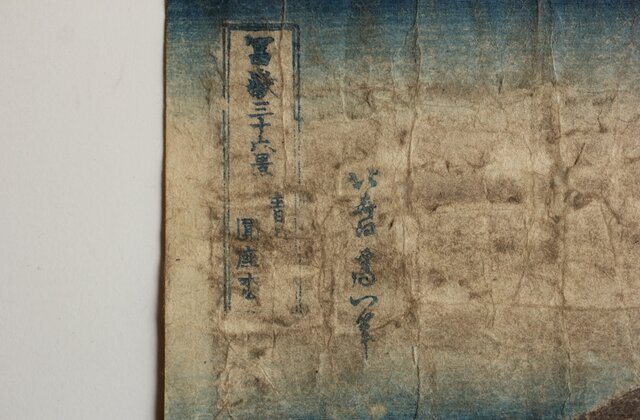 冨嶽三十六景
青山
圓座枩
北斎為一筆